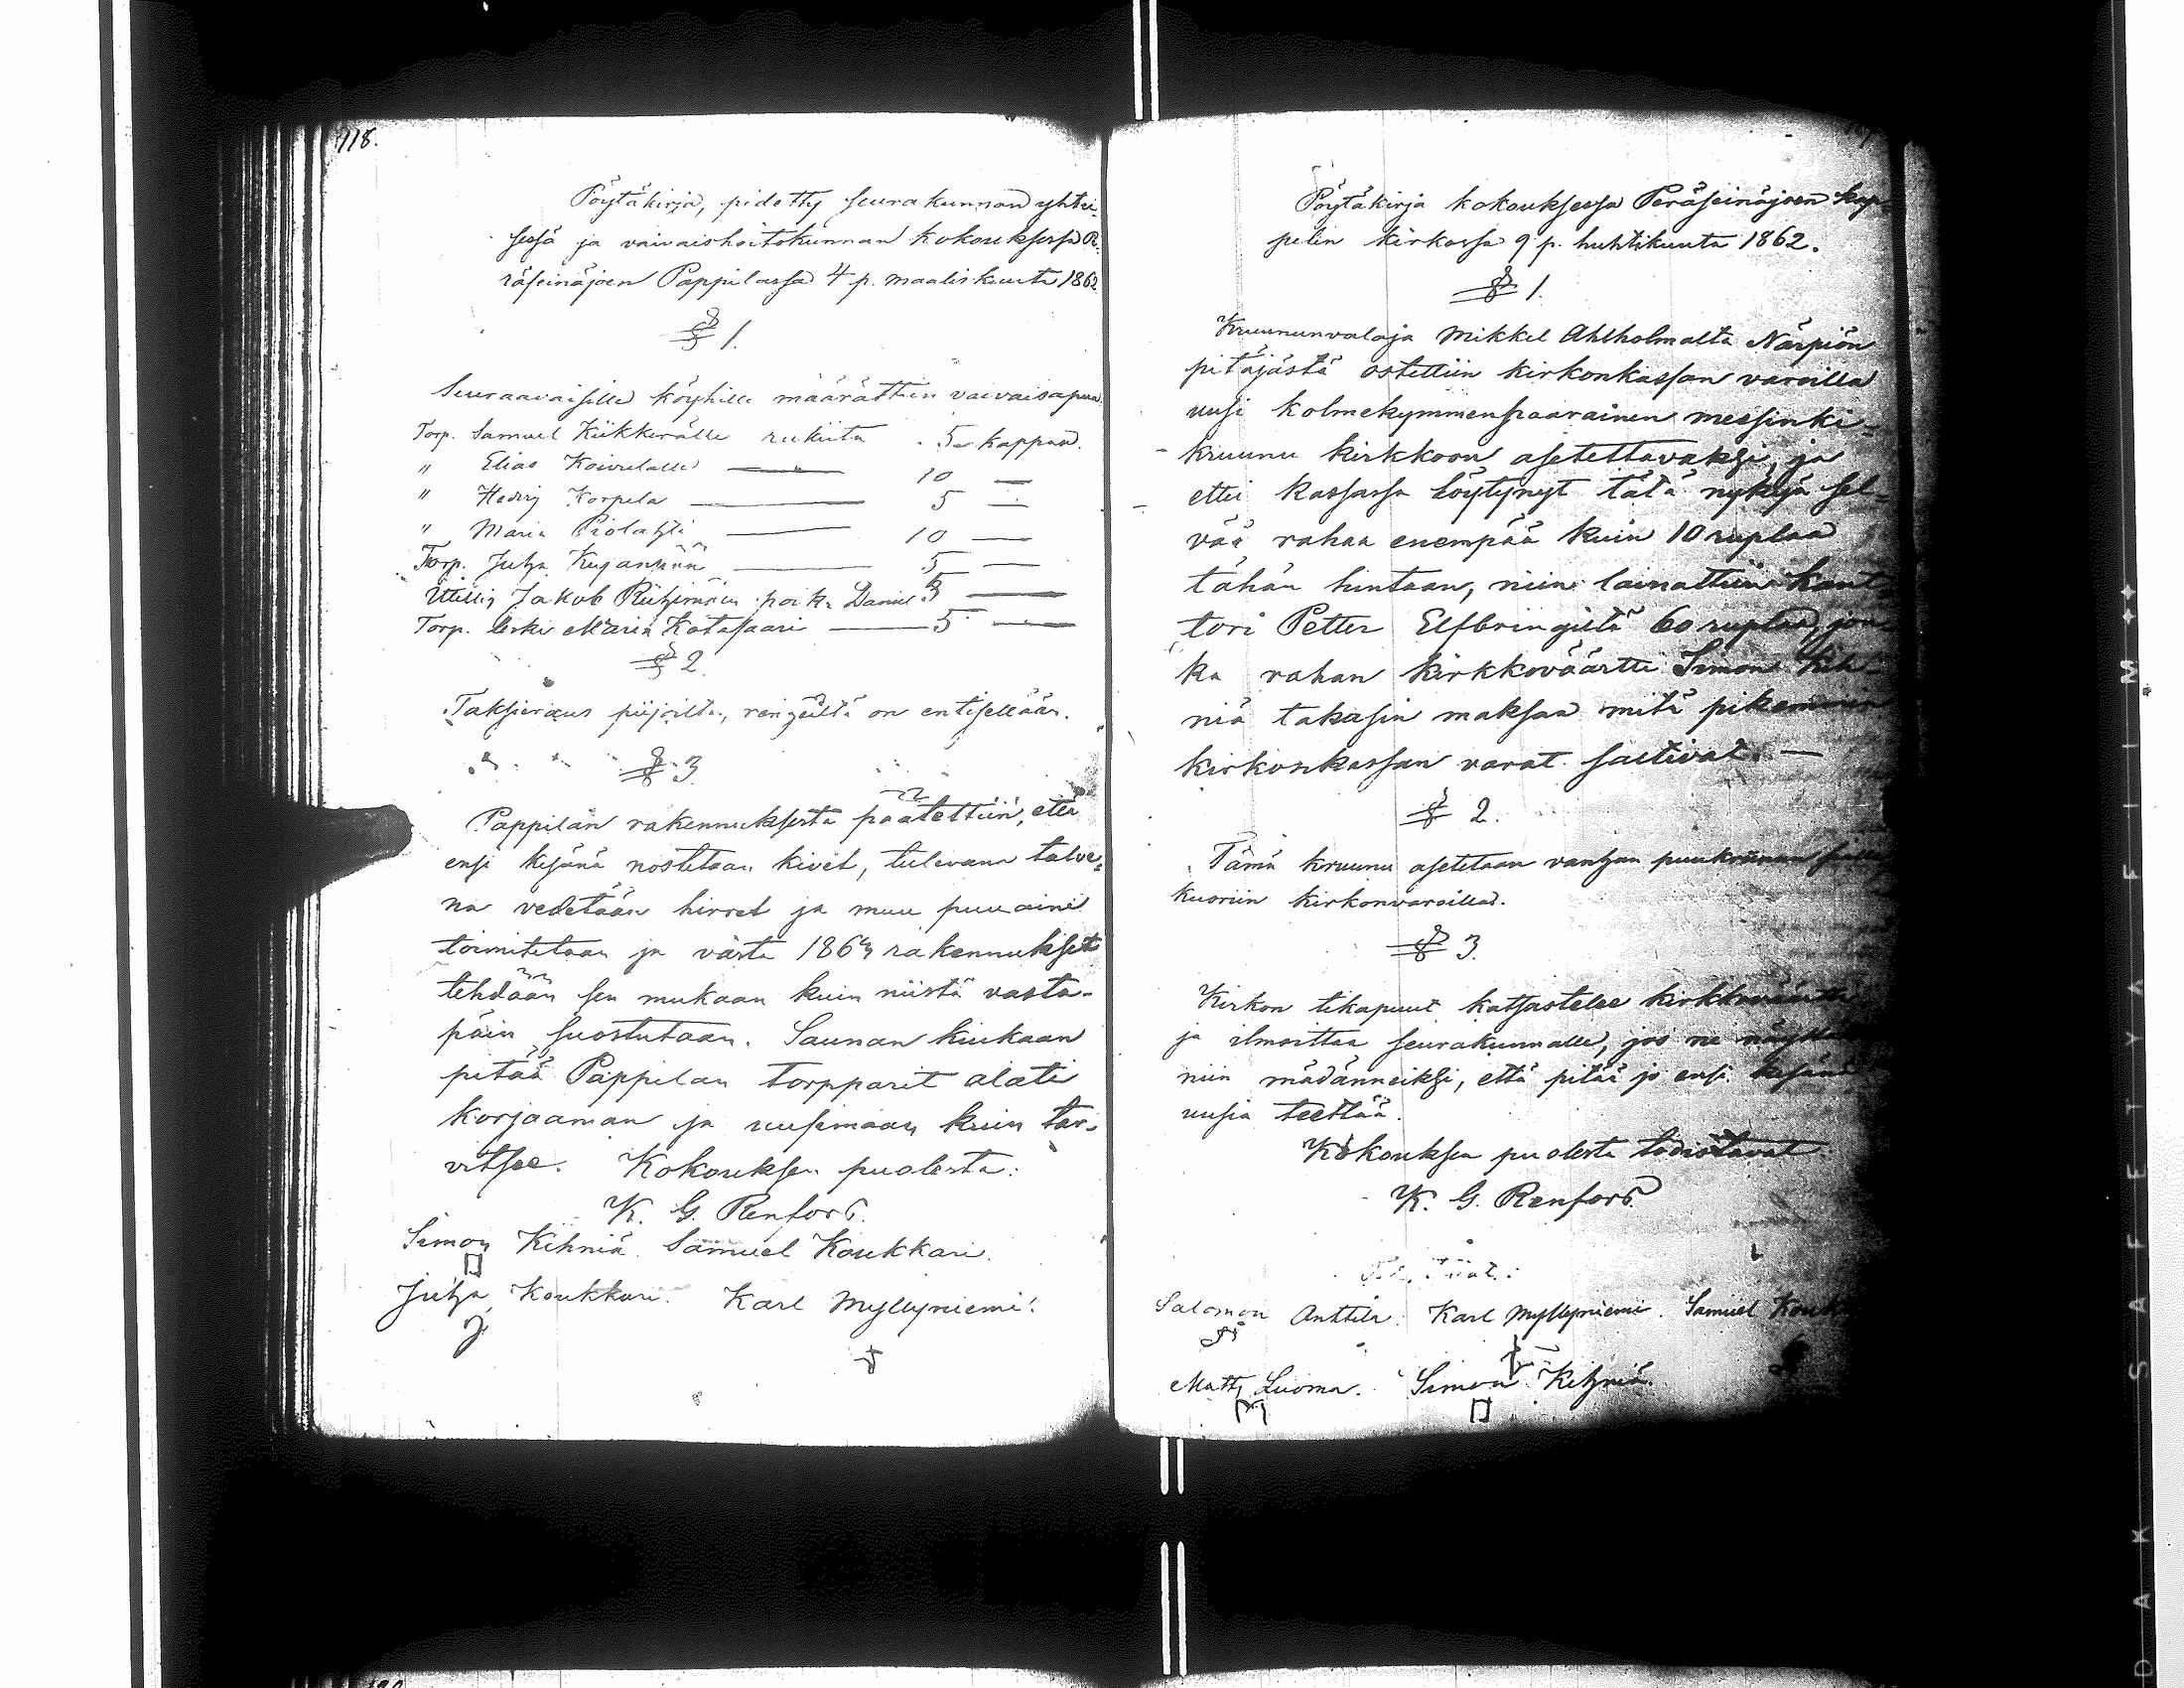 118.
Pöytäkirja, pidetty seurakunnan yhtei-
sessä ja vaivaishoitokunnan kokouksessa Pe-
räseinäjoen Pappilassa 4 p. maaliskuuta 1862
§ 1.
Seuraavaisille köyhille määrättiin vaivaisapua.
Torp. Samuel Kiikkerälle rukiita 5 kappaa.
" Elias Koivulalle — 10 —
" Hedvig Korpela — 5 —
" Maria — 10 —
Torp. Juha Kujanpää — 5 —
Jakob Riihimäen poika Daniel 5 —
Torp. leski Maria Katasaari — 5 —
§ 2.
Taksieraus piijoilta, rengeiltä on entisellään.
§ 3
Pappilan rakennuksesta päätettiin, että
ensi kesänä nostetaan kivet, tulevana talve-
na vedetään hirret ja muu puuaine
toimitetaan ja vasta 1864 rakennukset
tehdään sen mukaan kuin niistä vasta-
päin suostutaan. Saunan kiukaan
pitää Pappilan torpparit alati
korjaaman ja uusimaan kuin tar-
vitsee. Kokouksen puolesta:
K. G. Renfors.
Simon Kihniä. Samuel Koukkari.
Juha Koukkari. Karl Myllyniemi.
Pöytäkirja kokouksessa Peräseinäjoen kap-
pelin kirkossa 9 p. huhtikuuta 1862.
§ 1.
Kruununvalaja Mikkel Ahlholmalta Närpiön
pitäjästä ostettiin kirkonkassan varoilla
uusi kolmekymmenhaarainen messinki-
kruunu kirkkoon asetettavaksi, ja
ettei kassassa löytynyt tätä nykyä sel-
vää rahaa enempää kuin 10 ruplaa
tähän hintaan, niin lainattiin kant-
tori Petter Elfbringiltä 60 ruplaa, jon-
ka rahan kirkkoväärtti Simon Kih-
niä takasin maksaa mitä pikemmin
kirkonkassan varat saativat. —
§ 2.
Tämä kruunu asetetaan vanhan puukruunan
kuoriin kirkonvaroilla.
§ 3.
Kirkon tikapuut katsastelee kirkkoväärtti
ja ilmoittaa seurakunnalle, jos ne
niin mädänneiksi, että pitää jo ensi kesänä
uusia teettää.
Kokouksen puolesta todistavat.
K. G. Renfors.
Salomon Anttila. Karl Myllyniemi. Samuel
Matts Luoma. Simon Kihniä.